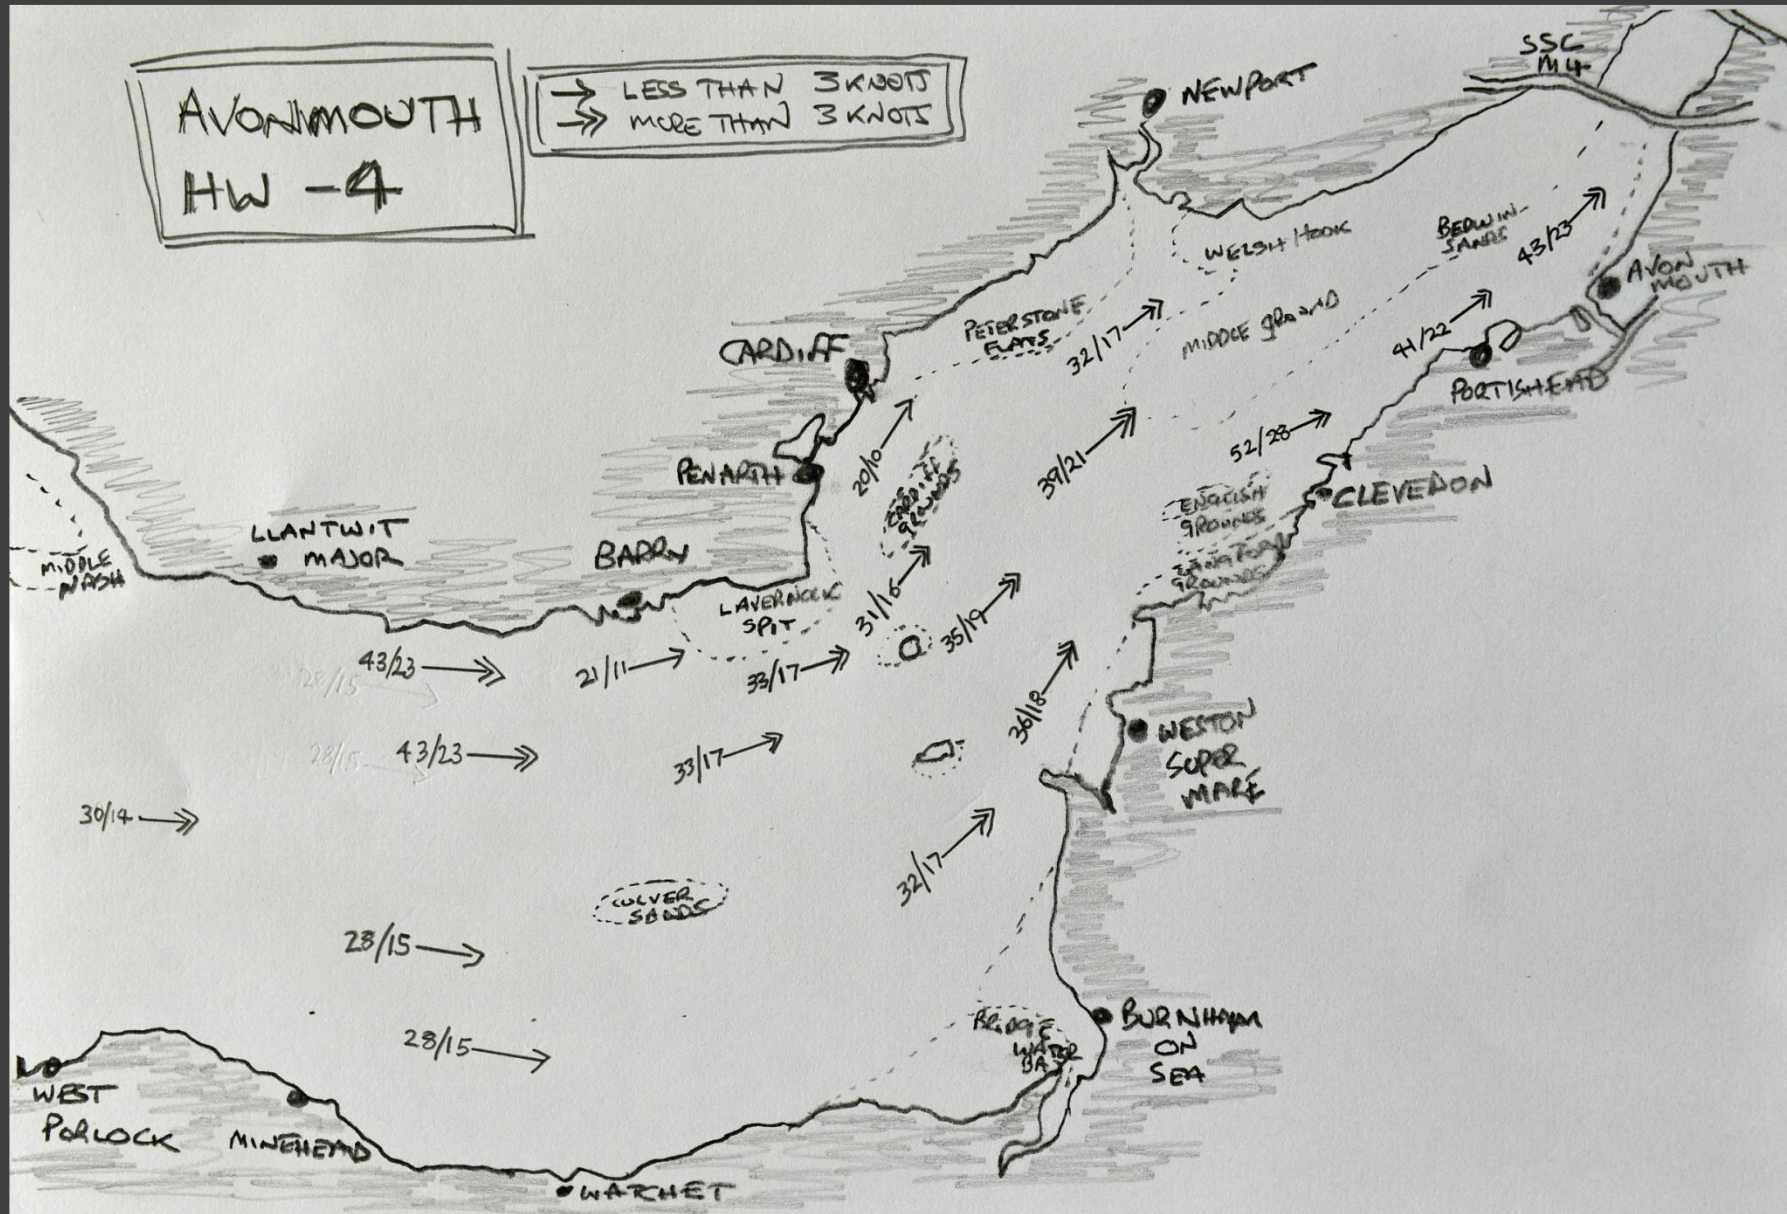 AVONMOUTH
HW -4
LESS THAN 3 KNOTS
MORE THAN 3 KNOTS
SSC
M4
NEWPORT
WELSH HOOK
BEDWIN
SANDS
43/23
AVON
MOUTH
PETERSTONE
FLATS
32/17
MIDDLE GROUND
41/22
PORTISHEAD
CARDIFF
20/10
39/21
52/28
PENARTH
CARDIFF
GROUNDS
ENGLISH
GROUNDS
CLEVEDON
LANGFORD
GROUNDS
LLANTWIT
MAJOR
MIDDLE
NASH
BARRY
LAVERNOCK
SPIT
31/16
35/19
43/23
28/15
21/11
33/17
36/18
43/23
28/15
33/17
WESTON
SUPER
MARE
30/14
32/17
CULVER
SANDS
28/15
28/15
BRIDGE
WATER
BAY
BURNHAM
ON
SEA
WEST
PORLOCK
MINEHEAD
WATCHET